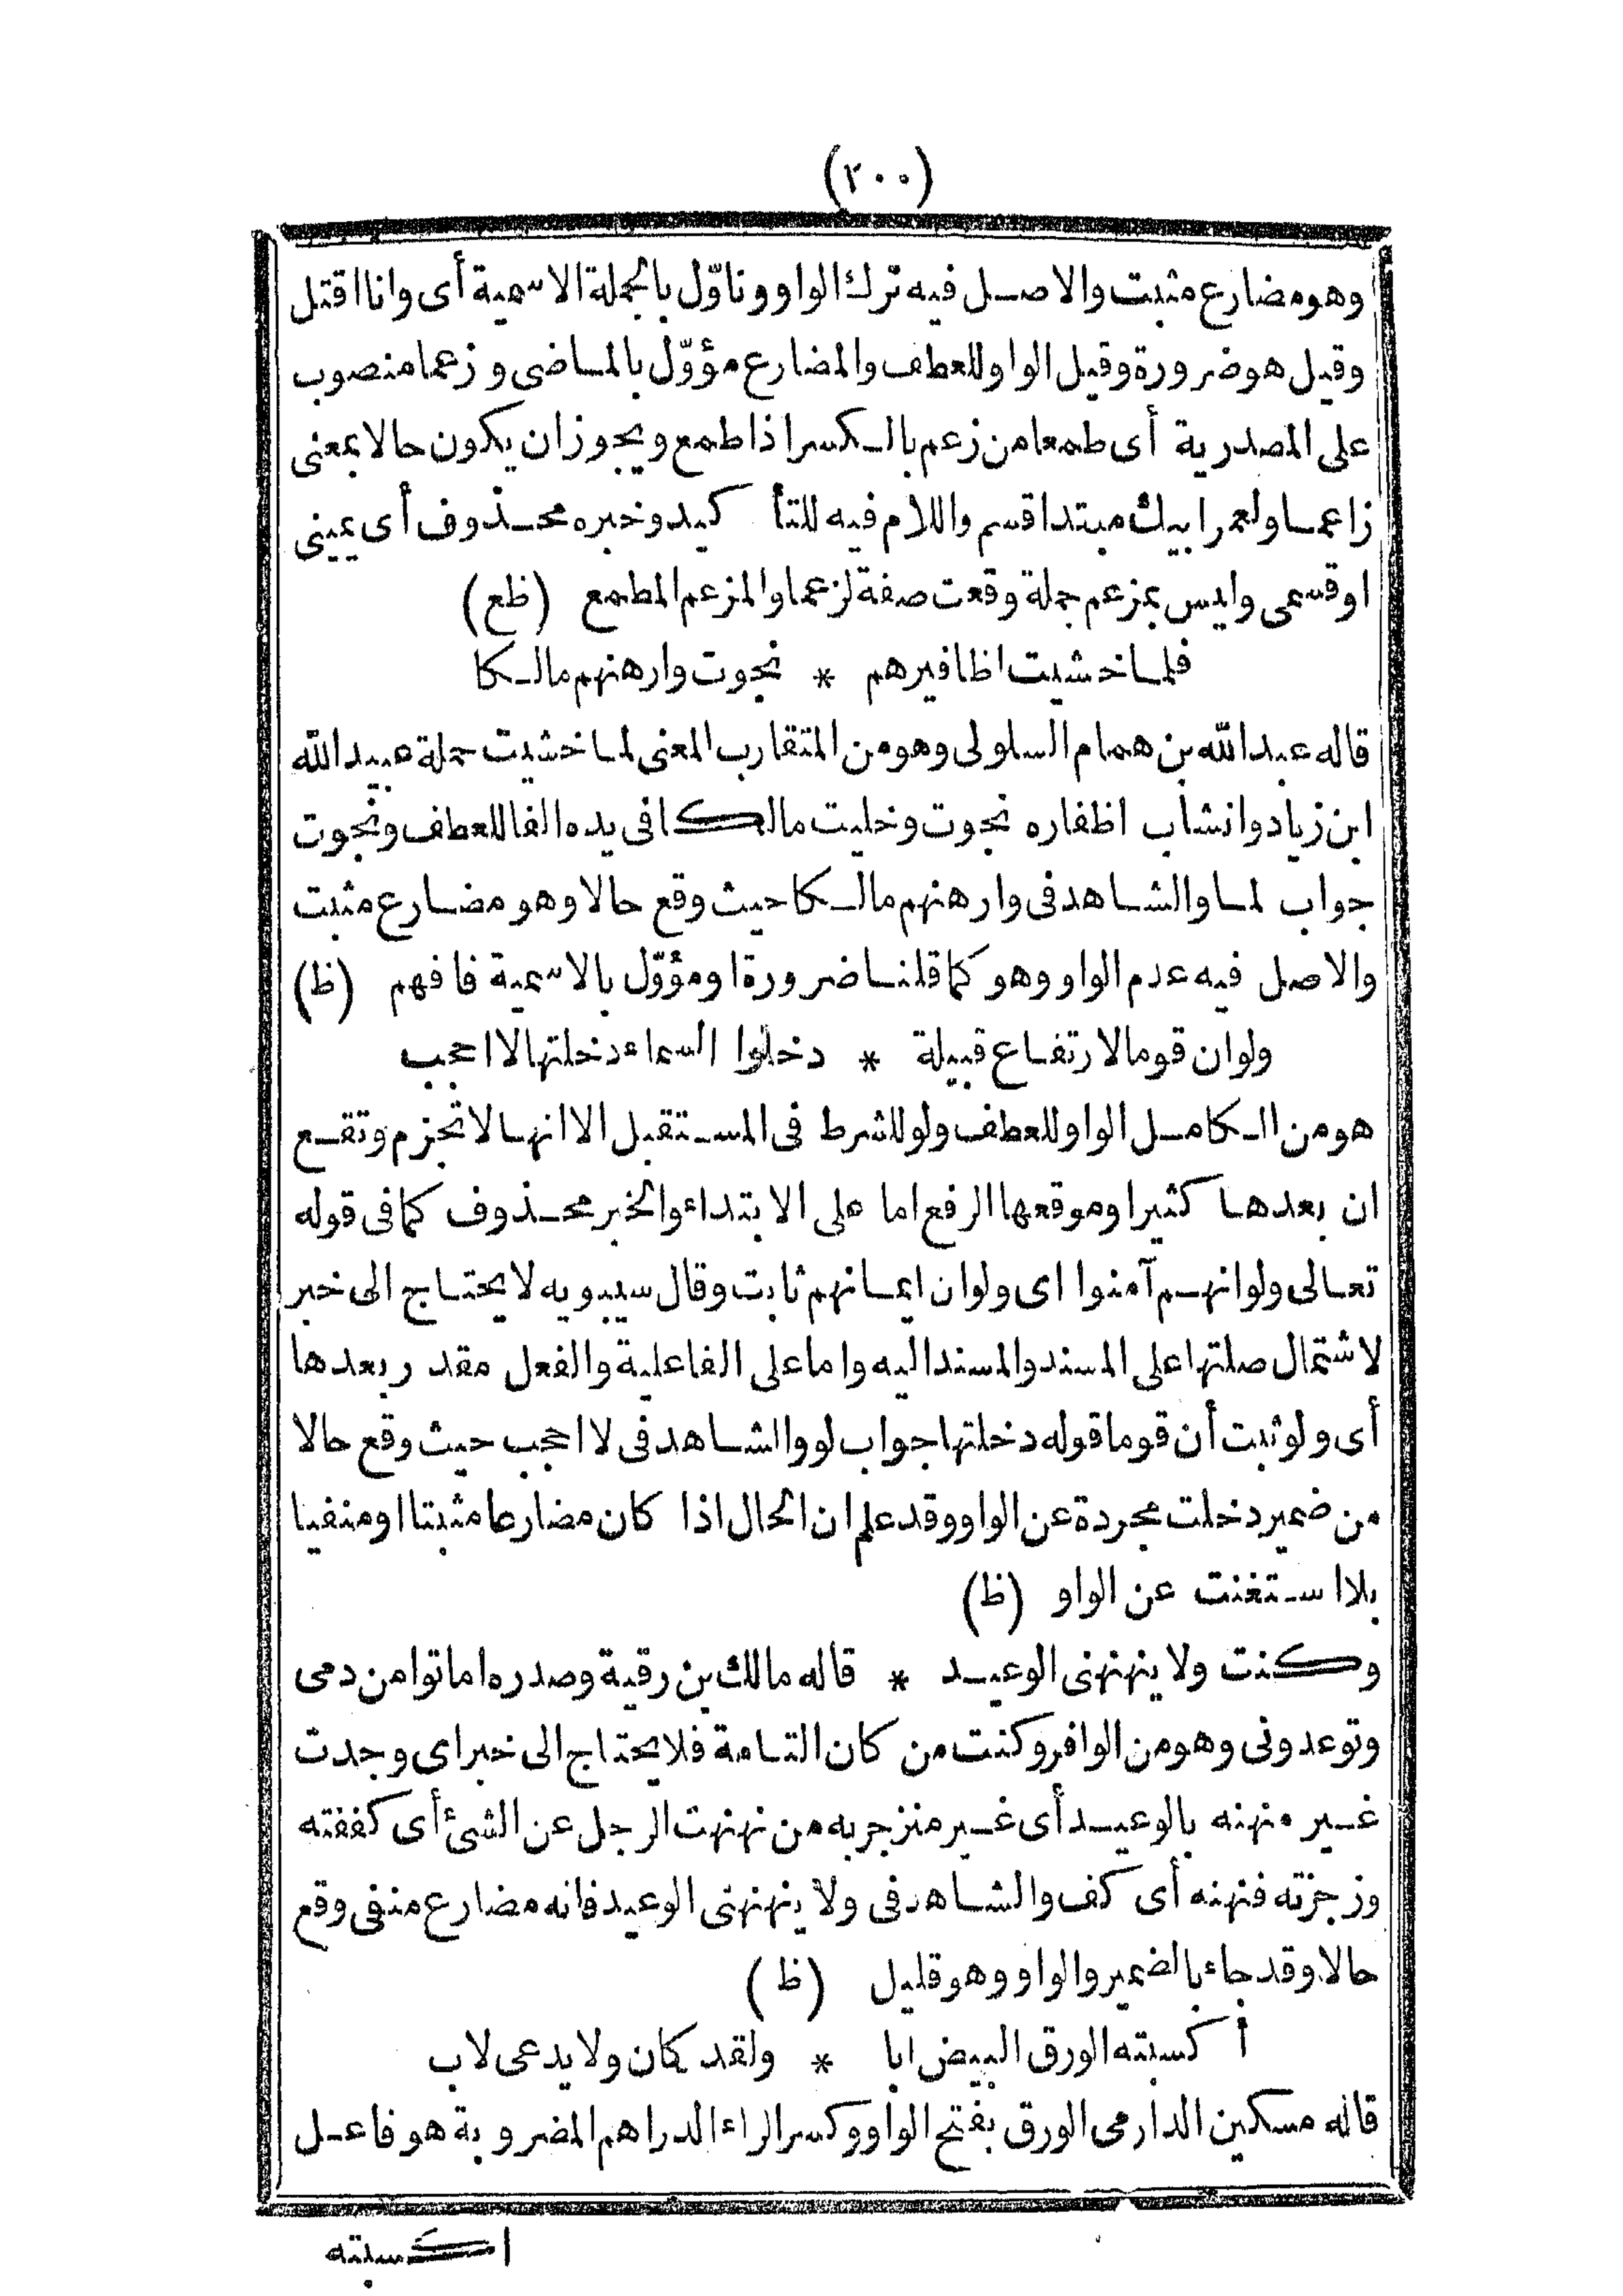 (٢٠٠)
وهو مضارع مثبت والاصل فيه ترك الواو وتاوّل بالجملة الاسمية أى وانا اقتل
وقيل هو ضرورة وقيل الواو للعطف والمضارع مؤوّل بالماضى وزعما منصوب
على المصدرية أى طمعا من زعم بالكسر اذا طمع ويجوز ان يكون حالا بمعنى
زاعما ولعمر ابيك مبتدا قسم واللام فيه للتأ كيد وخبره محذوف أى يمينى
او قسمى وليس بمزعم جملة وقعت صفة لزعما والمزعم المطمع (ظع)
فلما خشيت اظافيرهم * نجوت وارهنهم مالكا
قاله عبد الله بن همام السلولى وهو من المتقارب المعنى لما خشيت حملة عبيد الله
ابن زياد وانشاب اظفاره نجوت وخليت مالكا فى يده الفا للعطف ونجوت
جواب لما والشاهد فى وارهنهم مالكا حيث وقع حالا وهو مضارع مثبت
والاصل فيه عدم الواو وهو كما قلنا ضرورة او مؤوّل بالاسمية فافهم (ظ)
ولو ان قوما لارتفاع قبيلة * دخلوا السماء دخلتها لا احجب
هو من الكامل الواو للعطف ولو للشرط فى المستقبل الا انها لا تجزم وتقع
ان بعدها كثيرا وموقعها الرفع اما على الابتداء والخبر محذوف كما فى قوله
تعالى ولو انهم آمنوا اى ولو ان ايمانهم ثابت وقال سيبويه لا يحتاج الى خبر
لاشتمال صلتها على المسند والمسند اليه واما على الفاعلية والفعل مقدر بعدها
أى ولو ثبت أن قوما قوله دخلتها جواب لو والشاهد فى لا احجب حيث وقع حالا
من ضمير دخلت مجردة عن الواو وقد علم ان الحال اذا كان مضارعا مثبتا او منفيا
بلا استغنت عن الواو (ظ)
وكنت ولا ينهنهنى الوعيد * قاله مالك بن رقية وصدره اماتوا من دمى
وتوعدونى وهو من الوافر وكنت من كان التامة فلا يحتاج الى خبر اى وجدت
غير منهنه بالوعيد أى غير منزجر به من نهنهت الرجل عن الشئ أى كففته
وزجرته فنهنه أى كف والشاهد فى ولا ينهنهنى الوعيد فانه مضارع منفى وقع
حالا وقد جاء بالضمير والواو وهو قليل (ظ)
أكسبته الورق البيض ابا * ولقد كان ولا يدعى لاب
قاله مسكين الدارمى الورق بفتح الواو وكسر الراء الدراهم المضروبة هو فاعل
اكسبته